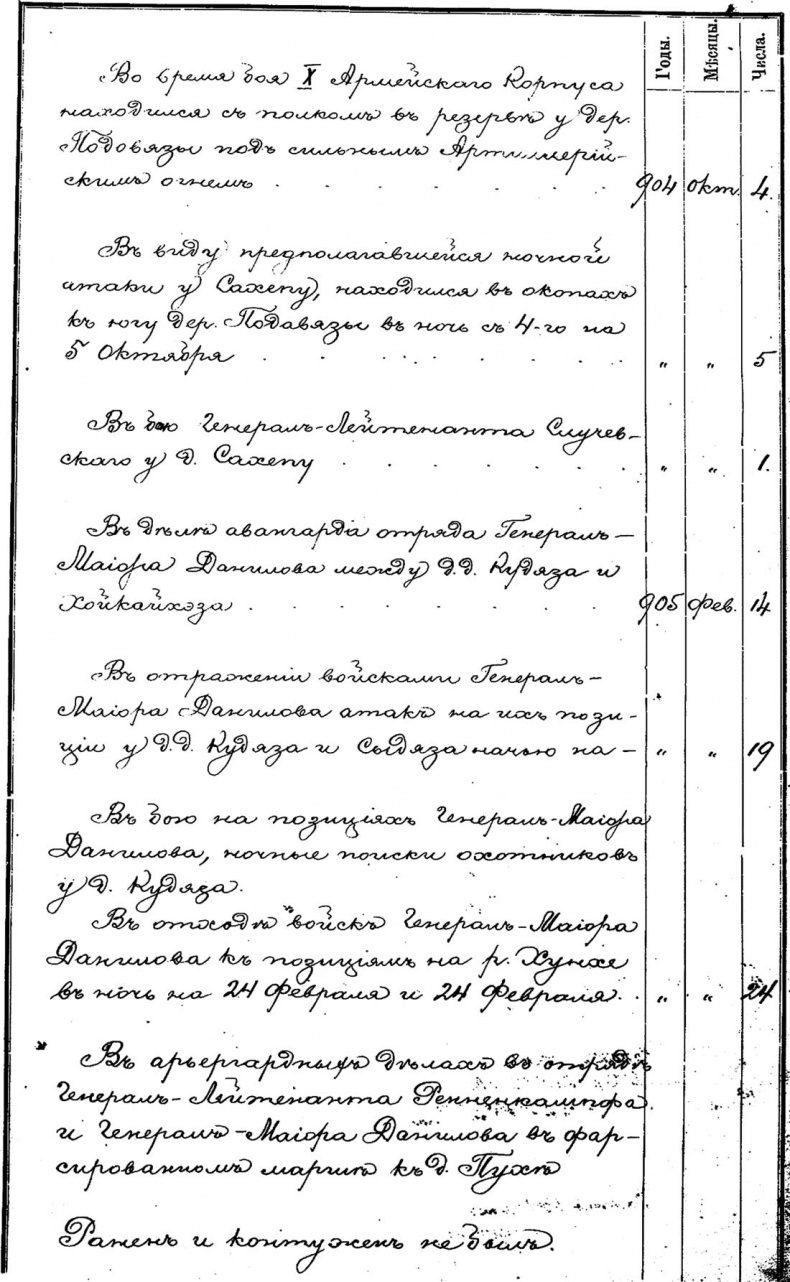 Годы. Мѣсяцы. Числа.
Во время боя X Армейскаго Корпуса
находился съ полкомъ въ резервѣ у дер.
Подовязы подъ сильнымъ Артиллерій-
скимъ огнемъ . . . . . . . 904 окт. 4.
Въ виду предполагавшейся ночной
атаки у Сахепу, находился въ окопахъ
къ югу дер. Подавязы въ ночь съ 4-го на
5 Октября . . . . . . . . „ „ 5
Въ бою Генералъ-Лейтенанта Случев-
скаго у д. Сахепу . . . . . . „ „ 1.
Въ дѣлѣ авангарда отряда Генералъ-
Маіора Данилова между д.д. Кудяза и
Хойкайхэза . . . . . . . 905 фев. 14
Въ отраженіи войсками Генералъ-
Маіора Данилова атакъ на ихъ пози-
ціи у д.д. Кудяза и Сыдяза начью на- „ „ 19
Въ бою на позиціяхъ Генералъ-Маіора
Данилова, ночные поиски охотниковъ
у д. Кудяза.
Въ отходѣ войскъ Генералъ-Маіора
Данилова къ позиціямъ на р. Хунхе
въ ночь на 24 Февраля и 24 Февраля. . „ „ 24
Въ арьергардныхъ дѣлахъ въ отрядѣ
Генералъ-Лейтенанта Ренненкампфа
и Генералъ-Маіора Данилова въ фар-
сированномъ маршѣ къ д. Пухѣ
Раненъ и контуженъ не былъ.